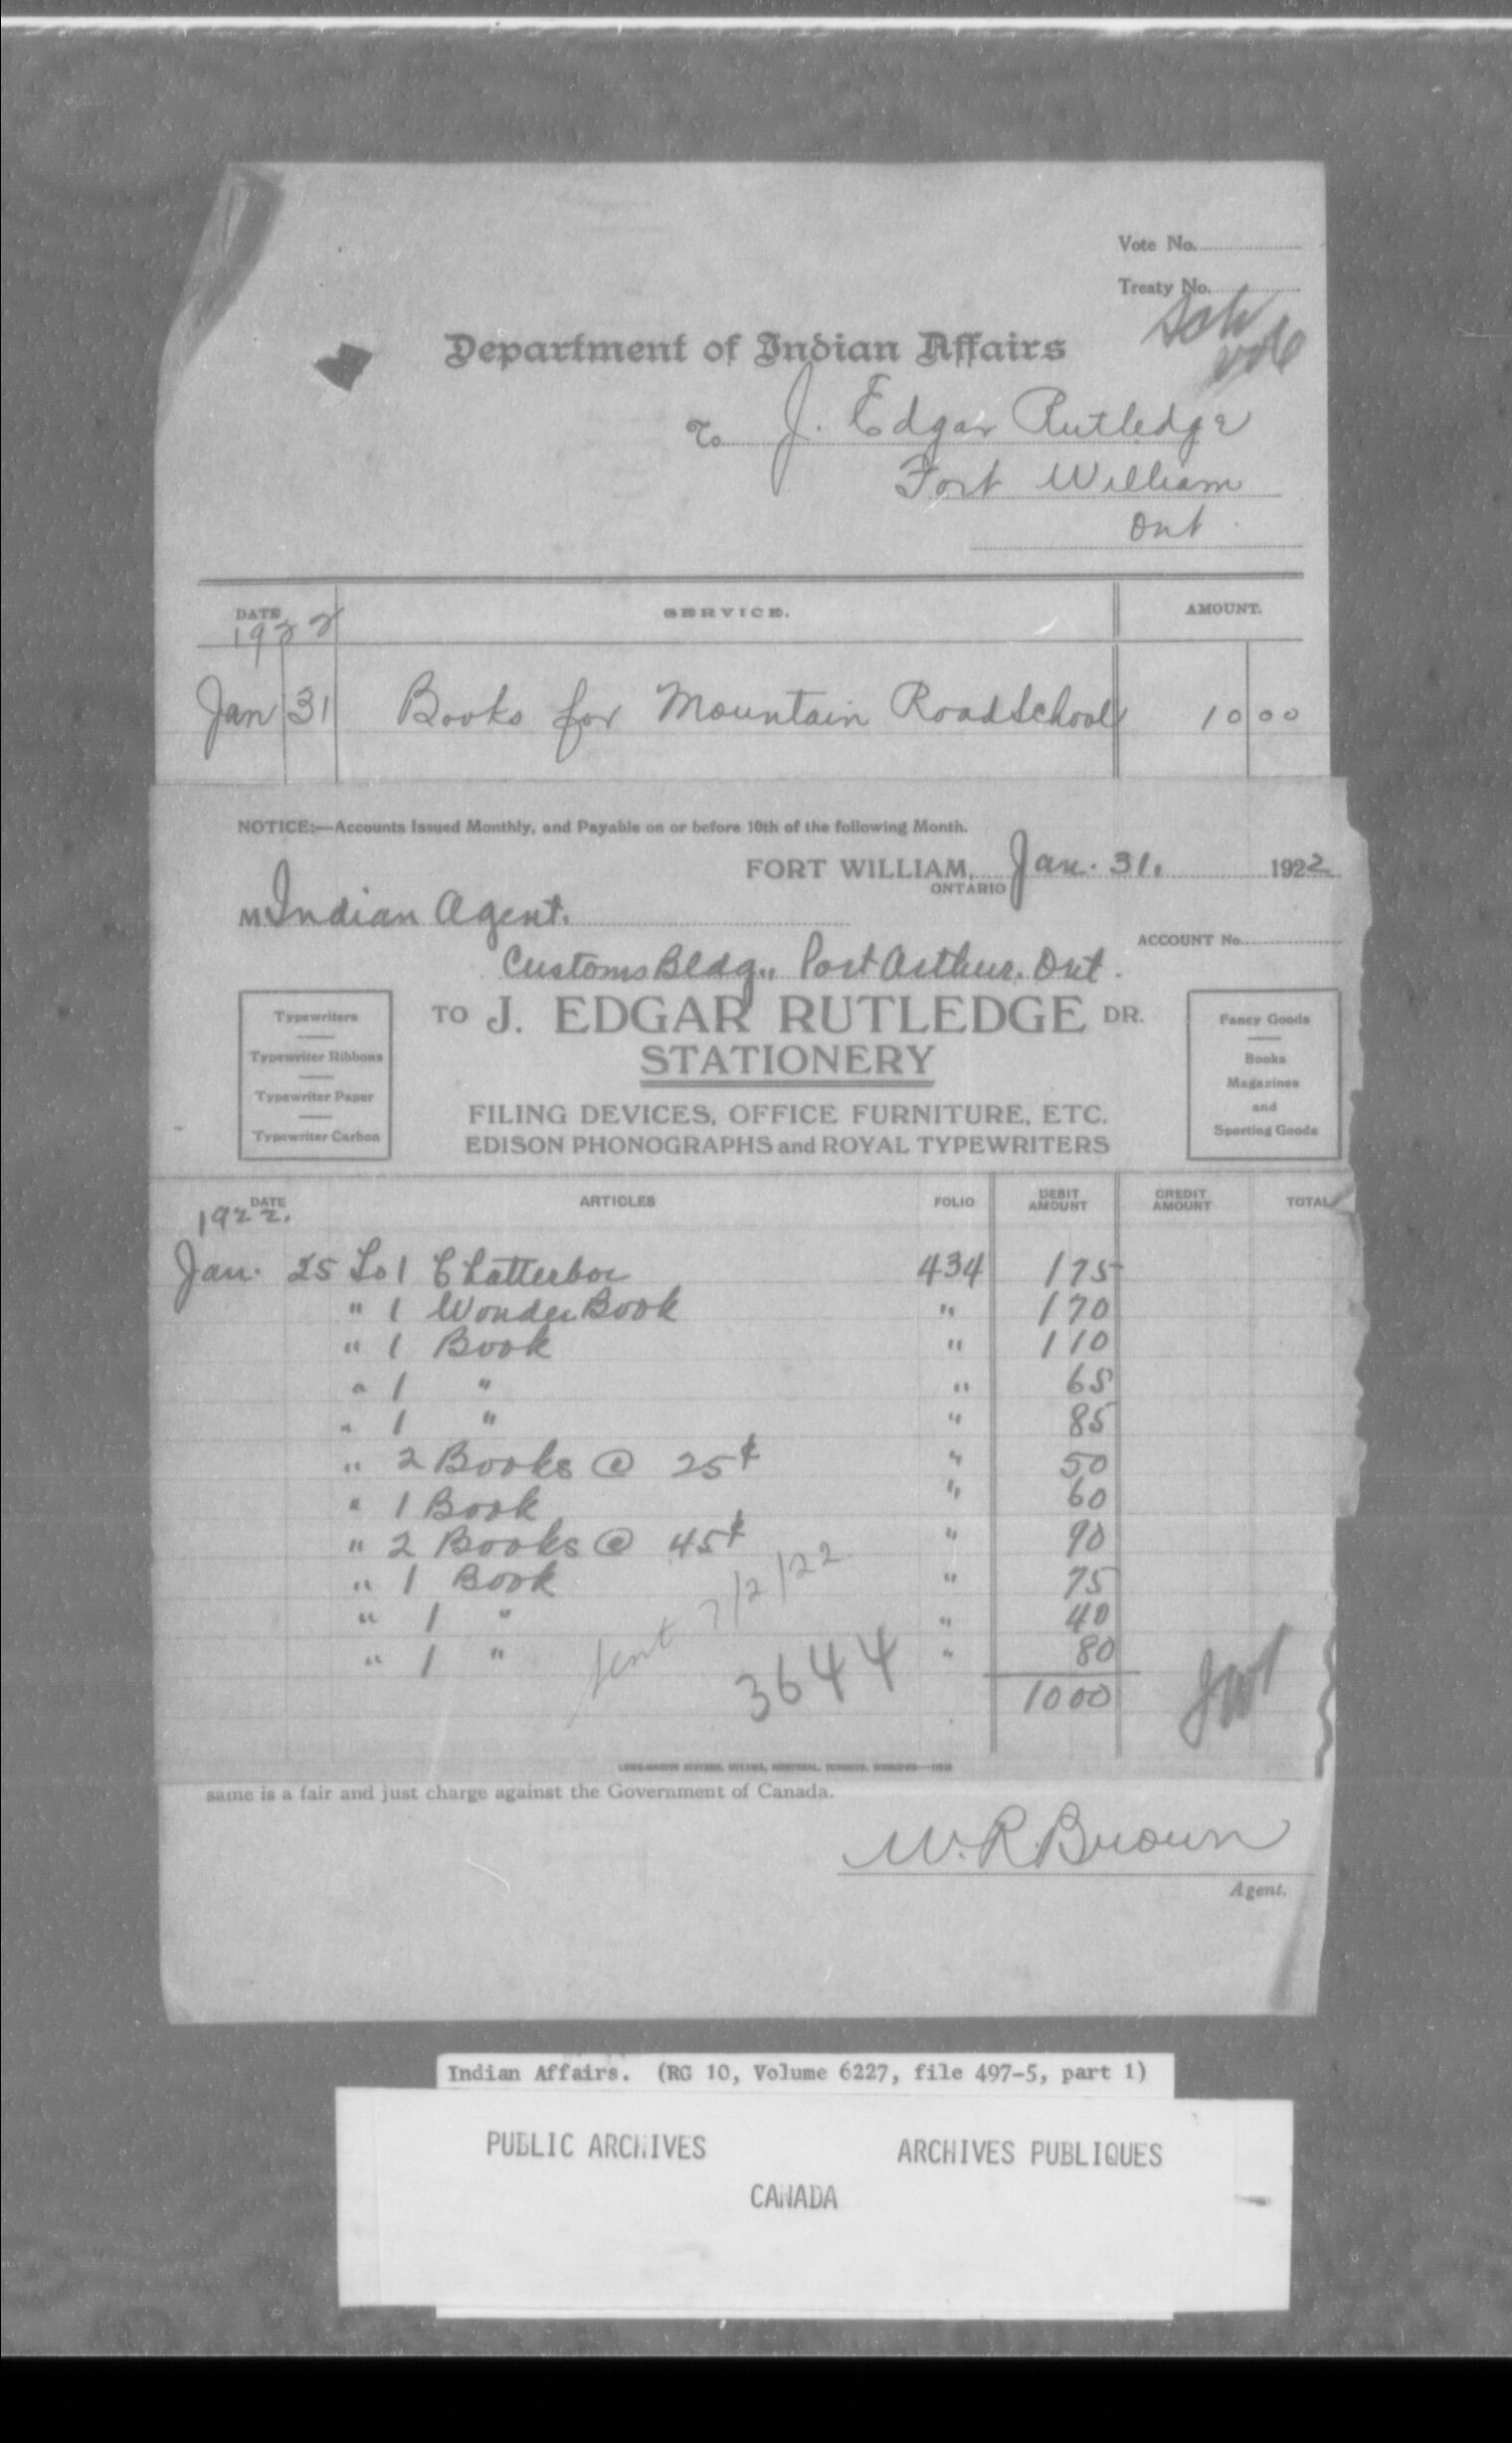 Vote No.
Treaty No.
Sch
vote
Department of Indian Affairs
To J. Edgar Rutledge
Fort William
Ont
DATE SERVICE. AMOUNT.
1922
Jan 31 Books for Mountain Road School 10 00
NOTICE:—Accounts Issued Monthly, and Payable on or before 10th of the following Month.
FORT WILLIAM, Jan. 31. 1922
ONTARIO
M Indian Agent.
ACCOUNT No.
Customs Bldg., Port Arthur. Ont.
TO J. EDGAR RUTLEDGE DR.
STATIONERY
FILING DEVICES, OFFICE FURNITURE, ETC.
EDISON PHONOGRAPHS and ROYAL TYPEWRITERS
Typewriters
Typewriter Ribbons
Typewriter Paper
Typewriter Carbon
Fancy Goods
Books
Magazines
and
Sporting Goods
DATE ARTICLES FOLIO DEBIT AMOUNT CREDIT AMOUNT TOTAL
1922.
Jan. 25 To 1 Chatterbox 434 175
" 1 Wonder Book " 170
" 1 Book " 110
" 1 " " 65
" 1 " " 85
" 2 Books @ 25¢ " 50
" 1 Book " 60
" 2 Books @ 45¢ " 90
" 1 Book " 75
" 1 " " 40
" 1 " " 80
1000
sent 7/2/22
3644
same is a fair and just charge against the Government of Canada.
W. R. Brown
Agent.
Indian Affairs. (RG 10, Volume 6227, file 497-5, part 1)
PUBLIC ARCHIVES ARCHIVES PUBLIQUES
CANADA